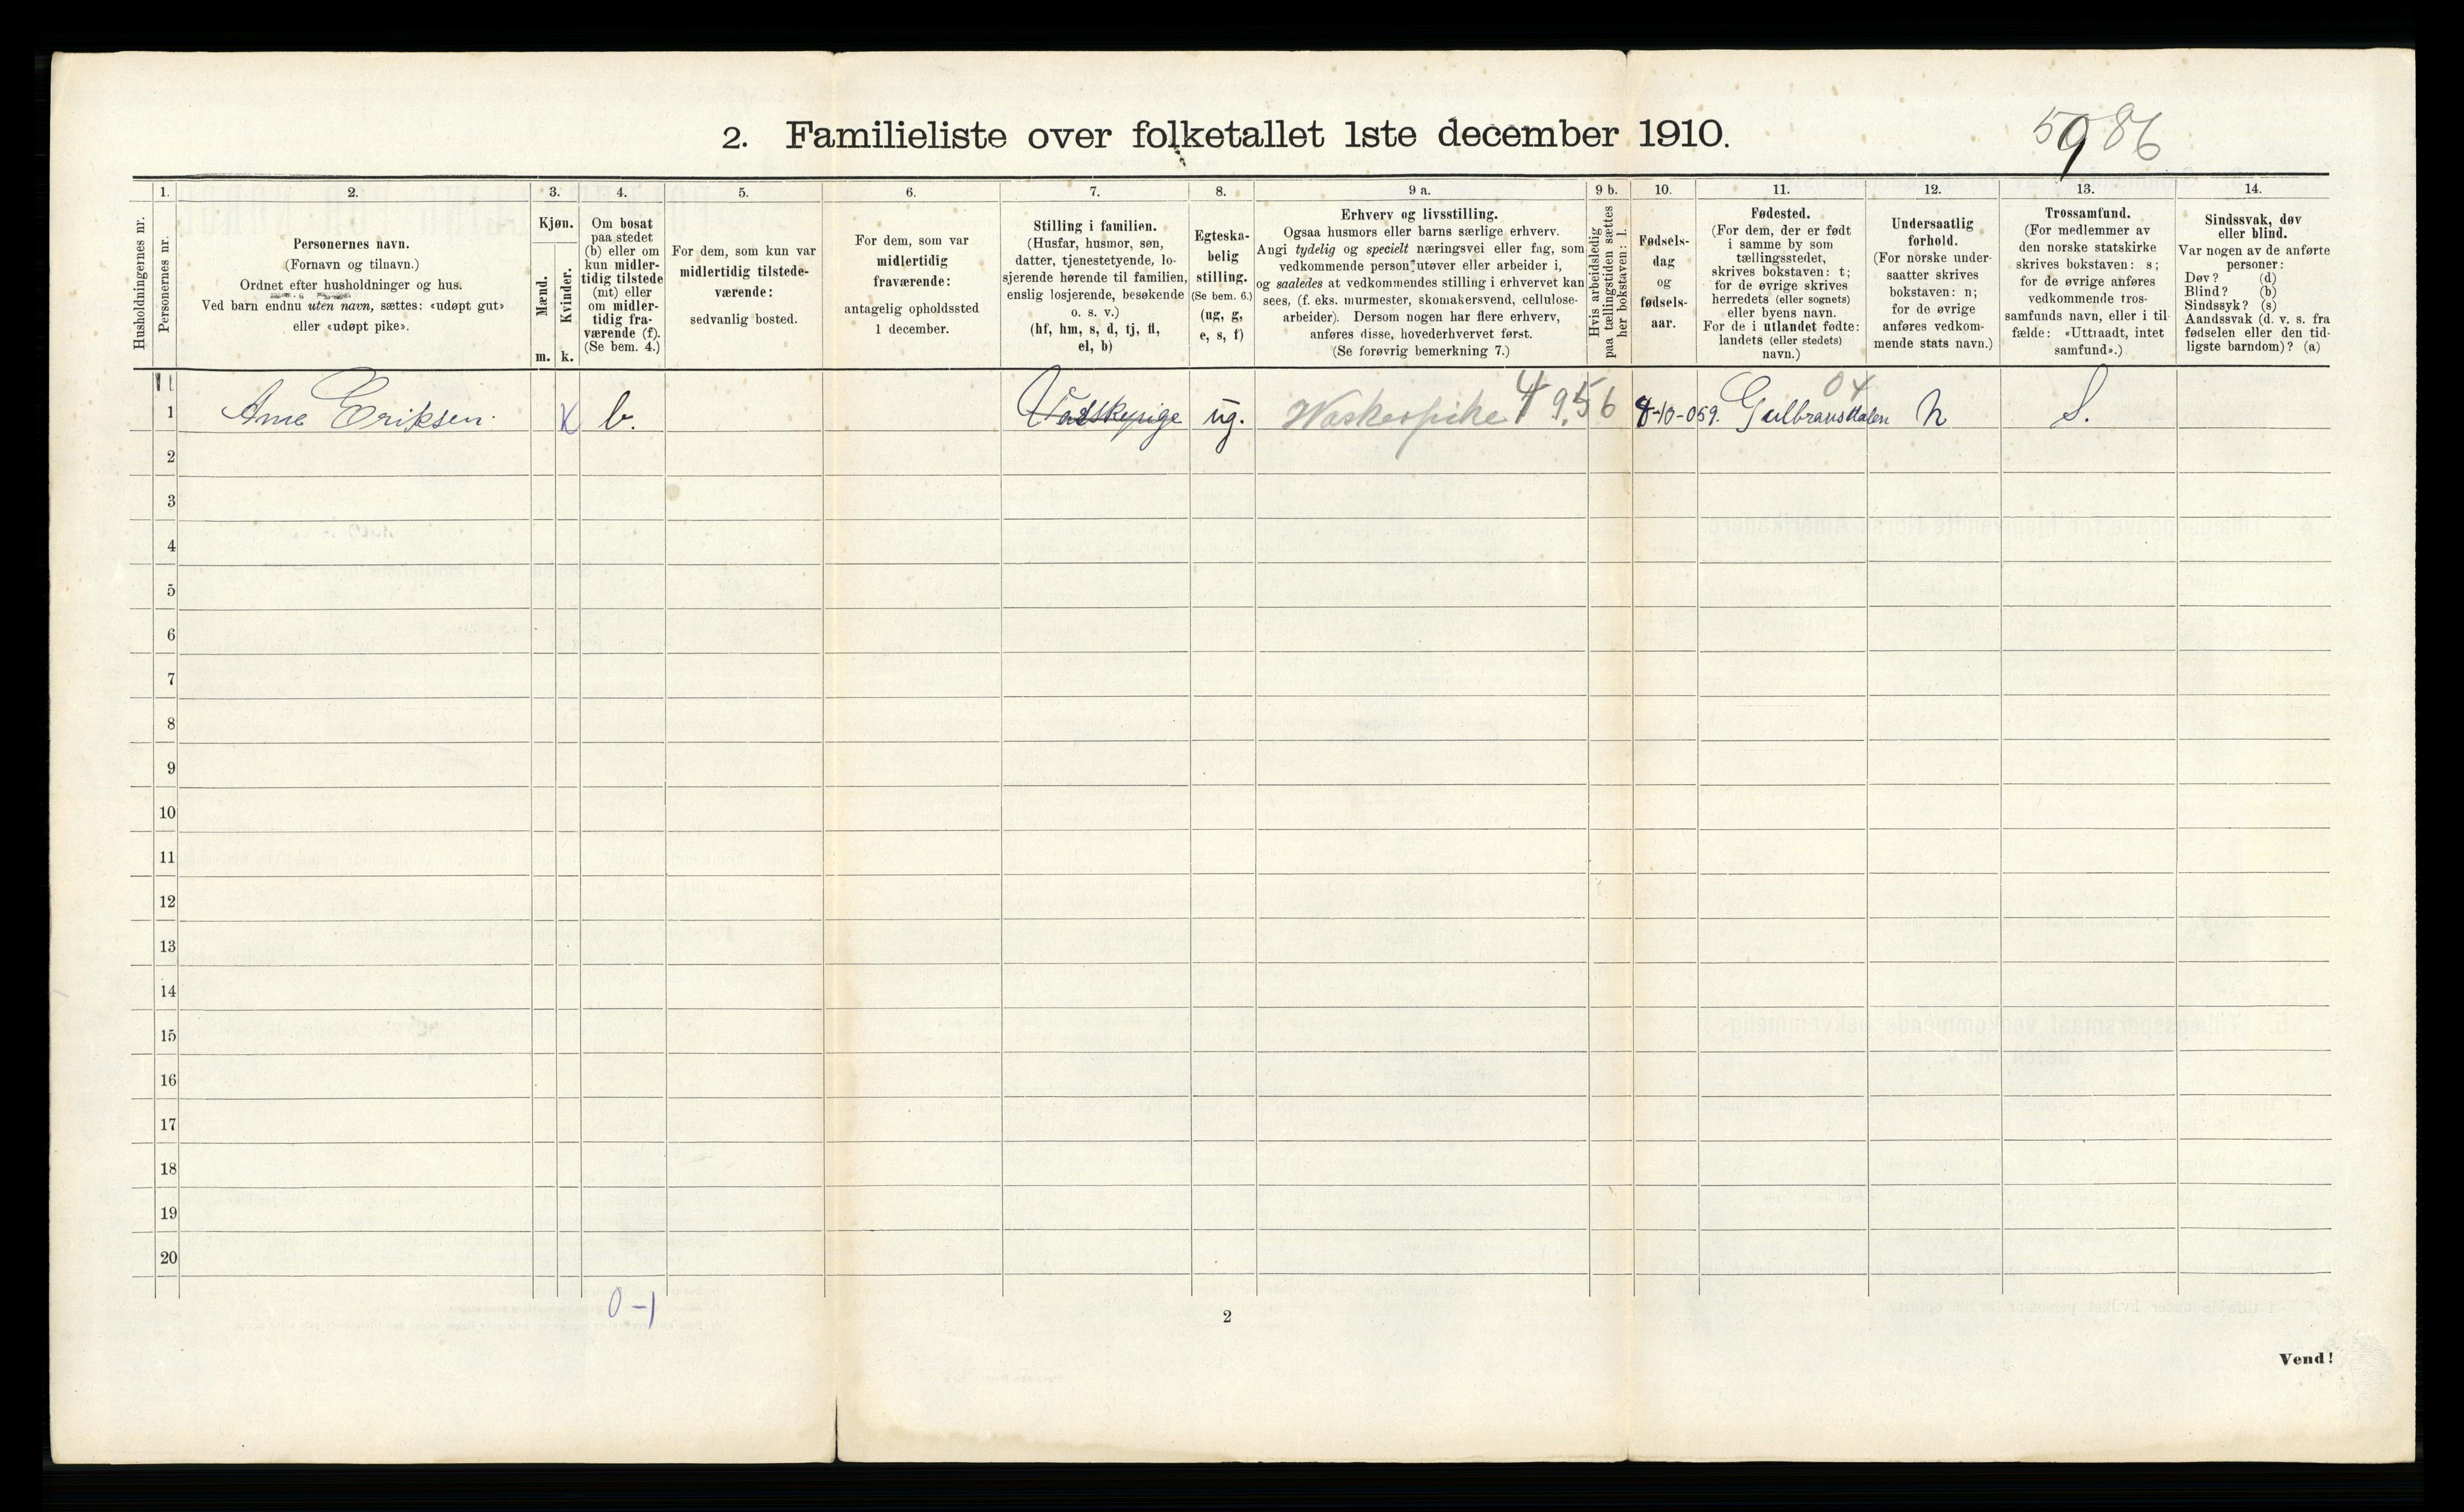 2. Familieliste over folketallet 1ste december 1910.
5986
9
1. 2. 3. 4. 5. 6. 7. 8. 9 a. 9 b. 10. 11. 12. 13. 14.
Husholdningernes nr.
Personernes nr.
Personernes navn.
(Fornavn og tilnavn.)
Ordnet efter husholdninger og hus.
Ved barn endnu uten navn, sættes: «udøpt gut»
eller «udøpt pike».
Kjøn.
Mænd.
Kvinder.
m. k.
Om bosat
paa stedet
(b) eller om
kun midler-
tidig tilstede
(mt) eller
om midler-
tidig fra-
værende (f).
(Se bem. 4.)
For dem, som kun var
midlertidig tilstede-
værende:
sedvanlig bosted.
For dem, som var
midlertidig
fraværende:
antagelig opholdssted
1 december.
Stilling i familien.
(Husfar, husmor, søn,
datter, tjenestetyende, lo-
sjerende hørende til familien,
enslig losjerende, besøkende
o. s. v.)
(hf, hm, s, d, tj, fl,
el, b)
Egteska-
belig
stilling.
(Se bem. 6.)
(ug, g,
e, s, f)
Erhverv og livsstilling.
Ogsaa husmors eller barns særlige erhverv.
Angi tydelig og specielt næringsvei eller fag, som
vedkommende person utøver eller arbeider i,
og saaledes at vedkommendes stilling i erhvervet kan
sees, (f. eks. murmester, skomakersvend, cellulose-
arbeider). Dersom nogen har flere erhverv,
anføres disse, hovederhvervet først.
(Se forøvrig bemerkning 7.)
Hvis arbeidsledig
paa tællingstiden sættes
her bokstaven: l.
Fødsels-
dag
og
fødsels-
aar.
Fødested.
(For dem, der er født
i samme by som
tællingsstedet,
skrives bokstaven: t;
for de øvrige skrives
herredets (eller sognets)
eller byens navn.
For de i utlandet fødte:
landets (eller stedets)
navn.)
Undersaatlig
forhold.
(For norske under-
saatter skrives
bokstaven: n;
for de øvrige
anføres vedkom-
mende stats navn.)
Trossamfund.
(For medlemmer av
den norske statskirke
skrives bokstaven: s;
for de øvrige anføres
vedkommende tros-
samfunds navn, eller i til-
fælde: «Uttraadt, intet
samfund».)
Sindssvak, døv
eller blind.
Var nogen av de anførte
personer:
Døv? (d)
Blind? (b)
Sindssyk? (s)
Aandssvak (d. v. s. fra
fødselen eller den tid-
ligste barndom)? (a)
1 Ane Eriksen. b. ug. Waskerpike 4 956 8-10-059. Gulbransdalen 04 n S.
2
3
4
5
6
7
8
9
10
11
12
13
14
15
16
17
18
19
20
0-1
2
Vend!